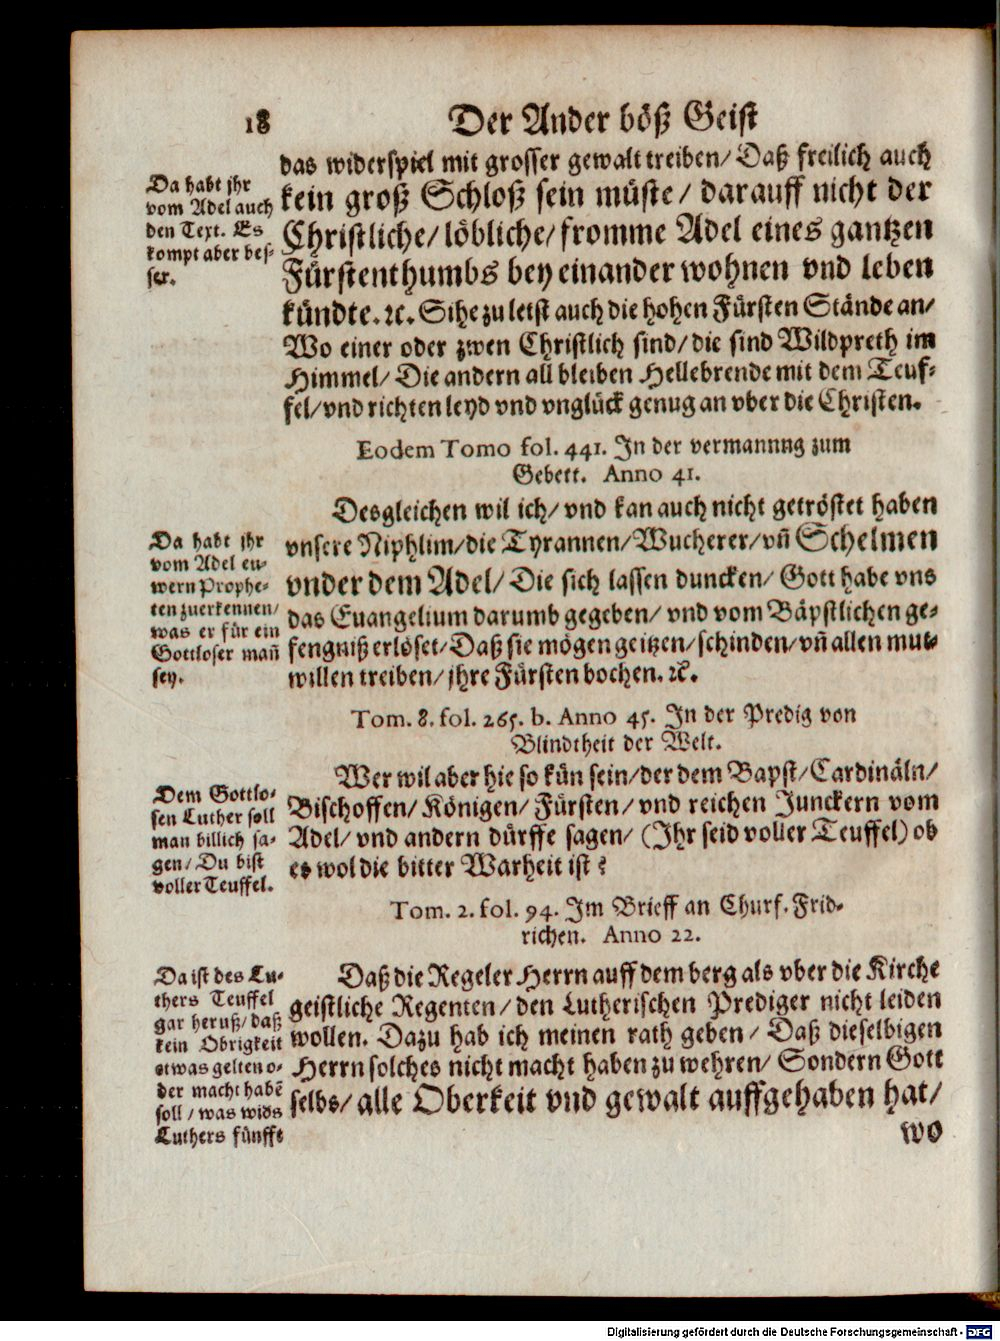 18
Der Ander böß Geist
das widerspiel mit grosser gewalt treiben/ Daß freilich auch
kein groß Schloß sein müste/ darauff nicht der
Christliche/ löbliche/ fromme Adel eines gantzen
Fürstenthumbs bey einander wohnen vnd leben
kündte. ꝛc. Sihe zu letst auch die hohen Fürsten Stände an/
Wo einer oder zwen Christlich sind/ die sind Wildpreth im
Himmel/ Die andern all bleiben Hellebrende mit dem Teuf-
fel/ vnd richten leyd vnd vnglück genug an vber die Christen.
Da habt jhr
vom Adel auch
den Text. Es
kompt aber bes-
ser.
Eodem Tomo fol. 441. In der vermannng zum
Gebett. Anno 41.
Desgleichen wil ich/ vnd kan auch nicht getröstet haben
vnsere Niphlim/ die Tyrannen/ Wucherer/ vñ Schelmen
vnder dem Adel/ Die sich lassen duncken/ Gott habe vns
das Euangelium darumb gegeben/ vnd vom Bäpstlichen ge-
fengniß erlöset/ Daß sie mögen geitzen/ schinden/ vñ allen mut-
willen treiben/ jhre Fürsten bochen. ꝛc.
Da habt ihr
vom Adel eu-
wern Prophe-
ten zuerkennen/
was er für ein
Gottloser mañ
sey.
Tom. 8. fol. 265. b. Anno 45. In der Predig von
Blindtheit der Welt.
Wer wil aber hie so kün sein/ der dem Bapst/ Cardinäln/
Bischoffen/ Königen/ Fürsten/ vnd reichen Junckern vom
Adel/ vnd andern dürffe sagen/ (Ihr seid voller Teuffel) ob
es wol die bitter Warheit ist?
Dem Gottlo-
sen Luther soll
man billich sa-
gen/ Du bist
voller Teuffel.
Tom. 2. fol. 94. Im Brieff an Churf. Frid-
richen. Anno 22.
Daß die Regeler Herrn auff dem berg als vber die Kirche
geistliche Regenten/ den Lutherischen Prediger nicht leiden
wollen. Dazu hab ich meinen rath geben/ Daß dieselbigen
Herrn solches nicht macht haben zu wehren/ Sondern Gott
selbs/ alle Oberkeit vnd gewalt auffgehaben hat/
Da ist des Lu-
thers Teuffel
gar heruß/ daß
kein Obrigkeit
etwas gelten o-
der macht habē
soll/ was wids
Luthers fünffe
wo
Digitalisierung gefördert durch die Deutsche Forschungsgemeinschaft - DFG